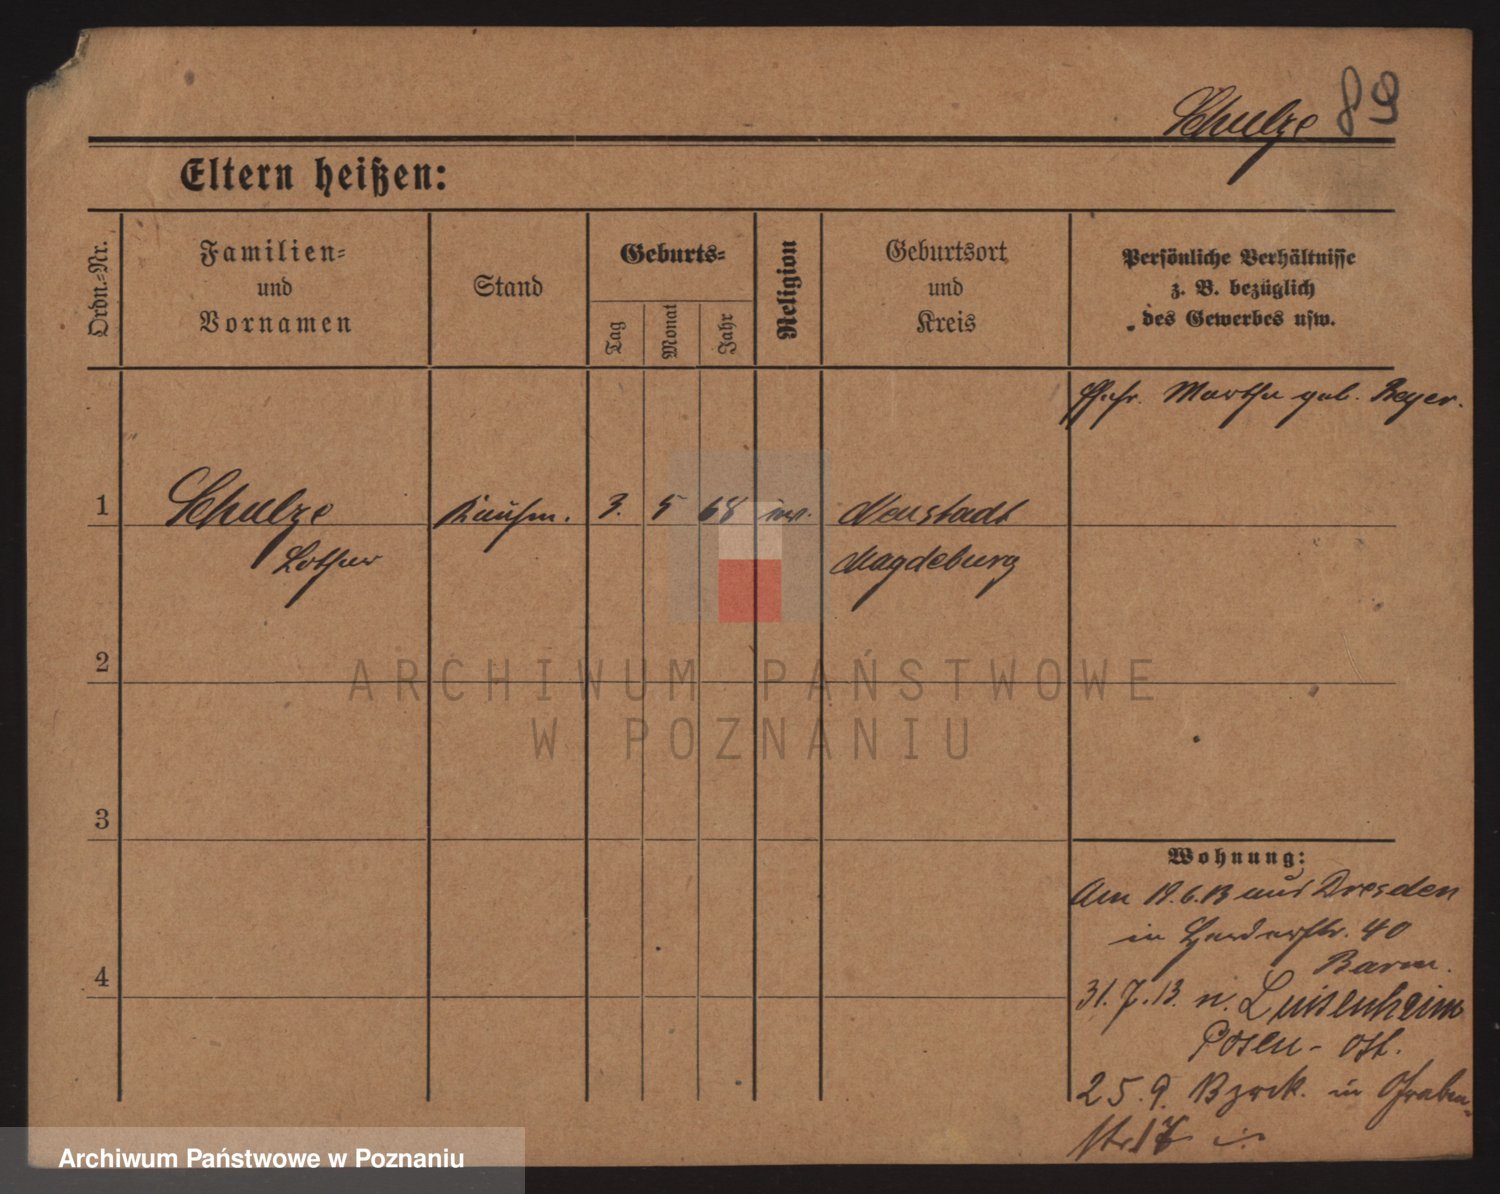 Schulze 89
Eltern heißen:
Ordn.-Nr.
Familien-
und
Vornamen
Stand
Geburts-
Tag
Monat
Jahr
Religion
Geburtsort
und
Kreis
Persönliche Verhältnisse
z. B. bezüglich
des Gewerbes usw.
Ehefr. Martha geb. Beyer.
1 Schulze Kaufm. 3. 5 68 ev. Neustadt
Lothar Magdeburg
2
3
4
Wohnung:
Am 19.6.13 aus Dresden
in Herderstr. 40
Barm.
31.7.13. n. Luisenheim
Posen-Ost.
25.9. Bzrck. in Graben-
str. 17
ARCHIWUM PAŃSTWOWE
W POZNANIU
Archiwum Państwowe w Poznaniu